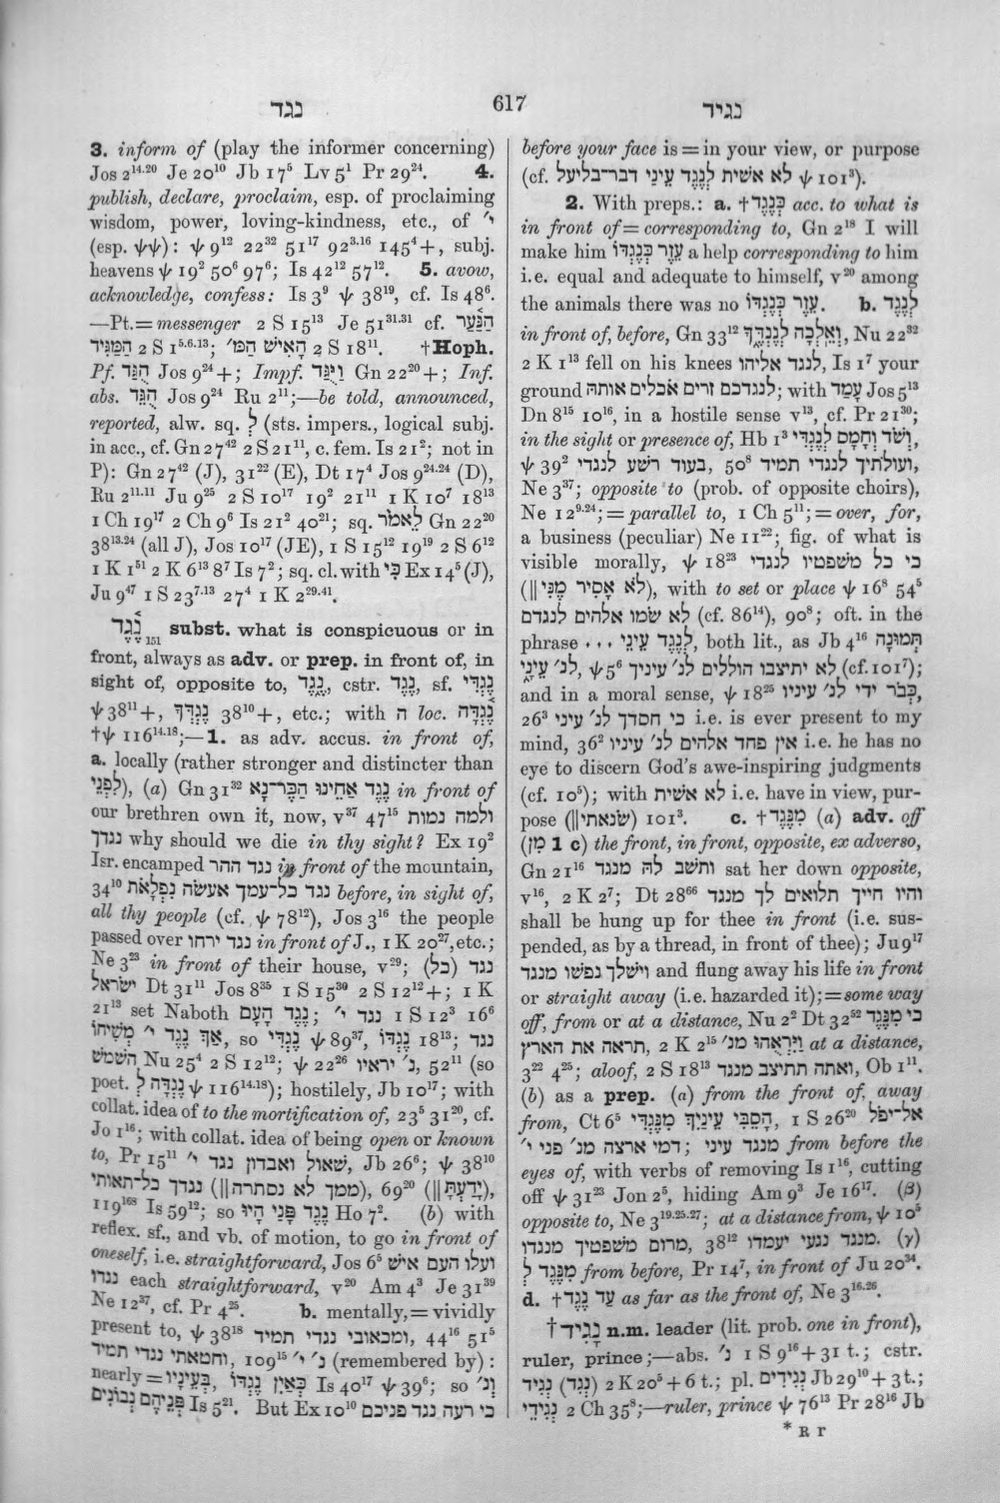 נגד
617
נגיד
3. inform of (play the informer concerning)
Jos 2¹⁴·²⁰ Je 20¹⁰ Jb 17⁵ Lv 5¹ Pr 29²⁴. 4.
publish, declare, proclaim, esp. of proclaiming
wisdom, power, loving-kindness, etc., of ׳י
(esp. ψψ): ψ 9¹² 22³² 51¹⁷ 92³·¹⁶ 145⁴+, subj.
heavens ψ 19² 50⁶ 97⁶; Is 42¹² 57¹². 5. avow,
acknowledge, confess: Is 3⁹ ψ 38¹⁹, cf. Is 48⁶.
—Pt. = messenger 2 S 15¹³ Je 51³¹·³¹ cf. הַנַּעַר
הַמַּגִּיד 2 S 1⁵·⁶·¹³; הָאִישׁ הַמּ׳ 2 S 18¹¹. †Hoph.
Pf. הֻגַּד Jos 9²⁴+; Impf. וַיֻּגַּד Gn 22²⁰+; Inf.
abs. הֻגֵּד Jos 9²⁴ Ru 2¹¹;—be told, announced,
reported, alw. sq. לְ (sts. impers., logical subj.
in acc., cf. Gn 27⁴² 2 S 21¹¹, c. fem. Is 21²; not in
P): Gn 27⁴² (J), 31²² (E), Dt 17⁴ Jos 9²⁴·²⁴ (D),
Ru 2¹¹·¹¹ Ju 9²⁵ 2 S 10¹⁷ 19² 21¹¹ 1 K 10⁷ 18¹³
1 Ch 19¹⁷ 2 Ch 9⁶ Is 21² 40²¹; sq. לֵאמֹר Gn 22²⁰
38¹³·²⁴ (all J), Jos 10¹⁷ (JE), 1 S 15¹² 19¹⁹ 2 S 6¹²
1 K 1⁵¹ 2 K 6¹³ 8⁷ Is 7²; sq. cl. with כִּי Ex 14⁵ (J),
Ju 9⁴⁷ 1 S 23⁷·¹³ 27⁴ 1 K 2²⁹·⁴¹.
נֶגֶד 151 subst. what is conspicuous or in
front, always as adv. or prep. in front of, in
sight of, opposite to, נֶגֶד, cstr. נֶגֶד, sf. נֶגְדִּי
ψ 38¹¹+, נֶגְדֶּךָ 38¹⁰+, etc.; with ה loc. נֶגְדָּה
†ψ 116¹⁴·¹⁸;—1. as adv. accus. in front of,
a. locally (rather stronger and distincter than
לִפְנֵי), (a) Gn 31³² נֶגֶד אַחֵינוּ הַכֶּר־נָא in front of
our brethren own it, now, v³⁷ 47¹⁵ ולמה נמות
נגדך why should we die in thy sight? Ex 19²
Isr. encamped נגד ההר in front of the mountain,
34¹⁰ נגד כל־עמך אעשׂה נִפְלָאֹת before, in sight of,
all thy people (cf. ψ 78¹²), Jos 3¹⁶ the people
passed over נגד ירחו in front of J., 1 K 20²⁷, etc.;
Ne 3²³ in front of their house, v²⁹; נגד (כל)
ישׂראל Dt 31¹¹ Jos 8³⁵ 1 S 15³⁰ 2 S 12¹²+; 1 K
21¹³ set Naboth נֶגֶד הָעָם; נגד י׳ 1 S 12³ 16⁶
אַךְ נֶגֶד י׳ מְשִׁיחוֹ, so נֶגְדִּי ψ 89³⁷, נֶגְדּוֹ 18¹³; נגד
השׁמשׁ Nu 25⁴ 2 S 12¹²; ψ 22²⁶ נ׳ יראיו, 52¹¹ (so
poet. נֶגְדָּה לְ ψ 116¹⁴·¹⁸); hostilely, Jb 10¹⁷; with
collat. idea of to the mortification of, 23⁵ 31²⁰, cf.
Jo 1¹⁶; with collat. idea of being open or known
to, Pr 15¹¹ שׁאול ואבדון נגד י׳, Jb 26⁶; ψ 38¹⁰
נגדך כל־תאותי (‖ ממך לא נסתרה), 69²⁰ (‖ יָדַעְתָּ),
119¹⁶⁸ Is 59¹²; so נֶגֶד פָּנַי הָיוּ Ho 7². (b) with
reflex. sf., and vb. of motion, to go in front of
oneself, i.e. straightforward, Jos 6⁵ ועלו העם אישׁ
נגדו each straightforward, v²⁰ Am 4³ Je 31³⁹
Ne 12³⁷, cf. Pr 4²⁵. b. mentally, = vividly
present to, ψ 38¹⁸ ומכאובי נגדי תמיד, 44¹⁶ 51⁵
וחטאתי נגדי תמיד, 109¹⁵ נ׳ י׳ (remembered by):
nearly = בְּעֵינָיו, כְּאַיִן נֶגְדּוֹ Is 40¹⁷ ψ 39⁶; so וְנ׳
פְּנֵיהֶם נְבוֹנִים Is 5²¹. But Ex 10¹⁰ כי רעה נגד פניכם
before your face is = in your view, or purpose
(cf. לא אשׁית לְנֶגֶד עֵינַי דבר־בליעל ψ 101³).
2. With preps.: a. †כְּנֶגֶד acc. to what is
in front of = corresponding to, Gn 2¹⁸ I will
make him עֵזֶר כְּנֶגְדּוֹ a help corresponding to him
i.e. equal and adequate to himself, v²⁰ among
the animals there was no עֵזֶר כְּנֶגְדּוֹ. b. לְנֶגֶד
in front of, before, Gn 33¹² וְאֵלְכָה לְנֶגְדֶּךָ, Nu 22³²
2 K 1¹³ fell on his knees לנגד אליהו, Is 1⁷ your
ground לנגדכם זרים אכלים אותה; with עָמַד Jos 5¹³
Dn 8¹⁵ 10¹⁶, in a hostile sense v¹³, cf. Pr 21³⁰;
in the sight or presence of, Hb 1³ וְשֹׁד וְחָמָס לְנֶגְדִּי,
ψ 39² בעוד רשׁע לנגדי, 50⁸ ועולתיך לנגדי תמיד,
Ne 3³⁷; opposite to (prob. of opposite choirs),
Ne 12⁹·²⁴; = parallel to, 1 Ch 5¹¹; = over, for,
a business (peculiar) Ne 11²²; fig. of what is
visible morally, ψ 18²³ כי כל משׁפטיו לנגדי
(‖ לֹא אָסִיר מֶנִּי), with to set or place ψ 16⁸ 54⁵
לא שׂמו אלהים לנגדם (cf. 86¹⁴), 90⁸; oft. in the
phrase לְנֶגֶד עֵינֵי . . . , both lit., as Jb 4¹⁶ תְּמוּנָה
לנ׳ עֵינָי, ψ 5⁶ לא יתיצבו הוללים לנ׳ עיניך (cf. 101⁷);
and in a moral sense, ψ 18²⁵ כְּבֹר ידי לנ׳ עיניו,
26³ כי חסדך לנ׳ עיני i.e. is ever present to my
mind, 36² אין פחד אלהים לנ׳ עיניו i.e. he has no
eye to discern God's awe-inspiring judgments
(cf. 10⁵); with לא אשׁית i.e. have in view, pur-
pose (‖ שׂנאתי) 101³. c. †מִנֶּגֶד (a) adv. off
(מִן 1 c) the front, in front, opposite, ex adverso,
Gn 21¹⁶ ותשׁב להּ מנגד sat her down opposite,
v¹⁶, 2 K 2⁷; Dt 28⁶⁶ והיו חייך תלואים לך מנגד
shall be hung up for thee in front (i.e. sus-
pended, as by a thread, in front of thee); Ju 9¹⁷
וישׁלך נפשׁו מנגד and flung away his life in front
or straight away (i.e. hazarded it); = some way
off, from or at a distance, Nu 2² Dt 32⁵² כי מִנֶּגֶד
תראה את הארץ, 2 K 2¹⁵ וַיִּרְאֻהוּ מנ׳ at a distance,
3²² 4²⁵; aloof, 2 S 18¹³ ואתה תתיצב מנגד, Ob 1¹¹.
(b) as a prep. (α) from the front of, away
from, Ct 6⁵ הָסֵבִּי עֵינַיִךְ מִנֶּגְדִּי, 1 S 26²⁰ אל־יפֹּל
דמי ארצה מנ׳ פני י׳; מנגד עיני from before the
eyes of, with verbs of removing Is 1¹⁶, cutting
off ψ 31²³ Jon 2⁵, hiding Am 9³ Je 16¹⁷. (β)
opposite to, Ne 3¹⁹·²⁵·²⁷; at a distance from, ψ 10⁵
מרום משׁפטיך מנגדו, 38¹² מנגד נגעי יעמדו. (γ)
מִנֶּגֶד לְ from before, Pr 14⁷, in front of Ju 20³⁴.
d. †עַד נֶגֶד as far as the front of, Ne 3¹⁶·²⁶.
†נָגִיד n.m. leader (lit. prob. one in front),
ruler, prince;—abs. נ׳ 1 S 9¹⁶+31 t.; cstr.
נְגִיד (נְגִד) 2 K 20⁵+6 t.; pl. נְגִידִים Jb 29¹⁰+3 t.;
נְגִידֵי 2 Ch 35⁸;—ruler, prince ψ 76¹³ Pr 28¹⁶ Jb
* R r